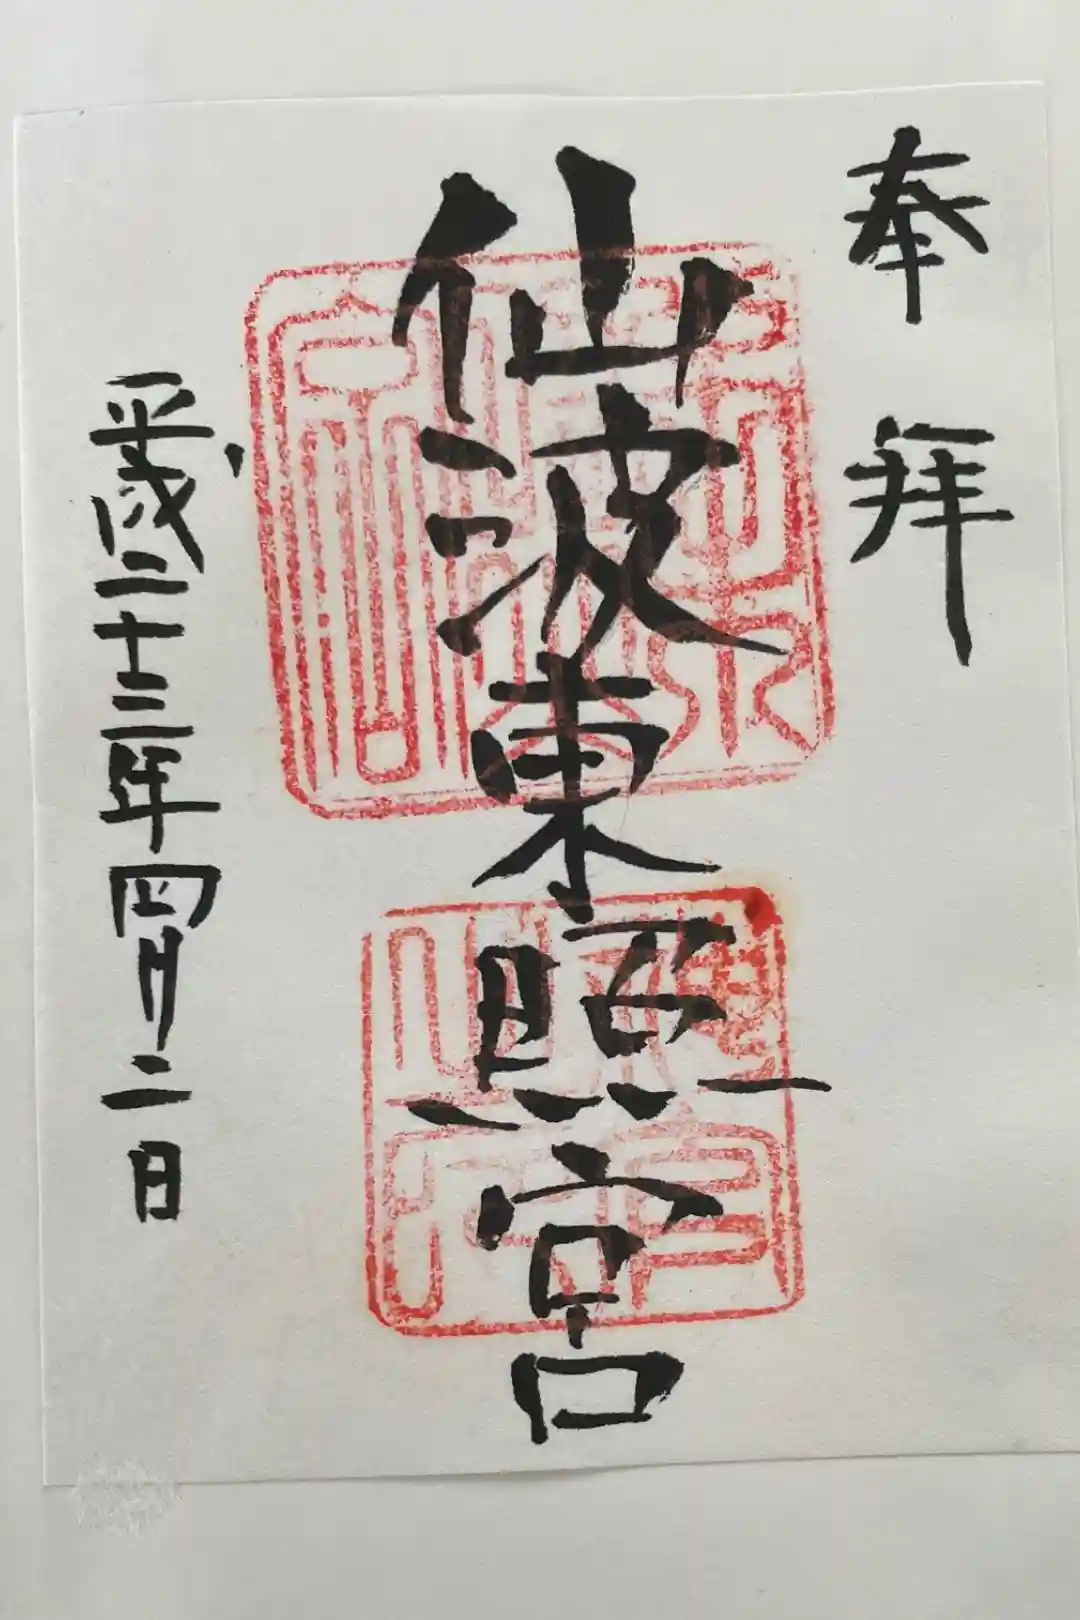 奉拝
仙波東照宮
平成二十三年四月二日